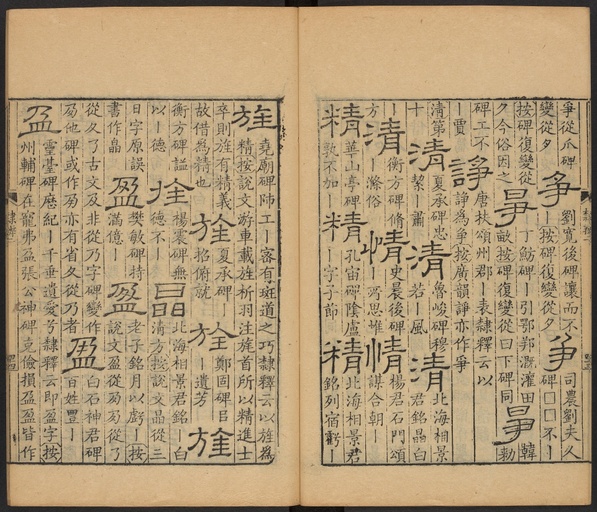 爭從爪碑
變從夕 爭 劉寬後碑讓而不｜按碑復變從夕 爭 司農劉夫人碑□□不｜
按碑復變從夕今俗因之 爭 丁魴碑｜引鄂鄭溉灌田畝按碑復變從曰下碑同 爭 韓勑
碑工不｜賈 諍 唐扶頌州郡｜表隸釋云以諍爲爭按廣韻諍亦作爭
清第十 清 夏承碑忠絜｜肅 清 魯峻碑穆若｜風 清 北海相景君銘晶白
清方｜ 清 衡方碑脩｜滌俗 情 史晨後碑｜所思惟 情 楊君石門頌謀合朝｜
精 華山亭碑 精 孔宙碑陰盧精字子節 精 北海相景君銘列宿虧｜
旌 堯廟碑師工｜密有班道之巧隸釋云以旌爲精按說文游車載旌析羽注旌首所以精進士
卒則旌有精義故借爲精也 旌 夏承碑｜招俯就 旌 鄭固碑曰｜遺芳 旌
衡方碑謚以｜德 旌 楊震碑無德不｜ 晶 北海相景君銘｜白清方按說文晶從三
日字原誤書作晶 盈 樊敏碑持滿億｜ 盈 老子銘月以虧｜按說文盈從皿夃夃從了
從夂了古文及非從乃字碑變作夃他碑或作夃亦有省夂從乃者 盈 白石神君碑百姓豐｜
靈臺碑歷紀｜千垂遺愛兮隸釋云即盈字按
盈 州輔碑在寵弗盈張公神碑克儉損盈盈皆作